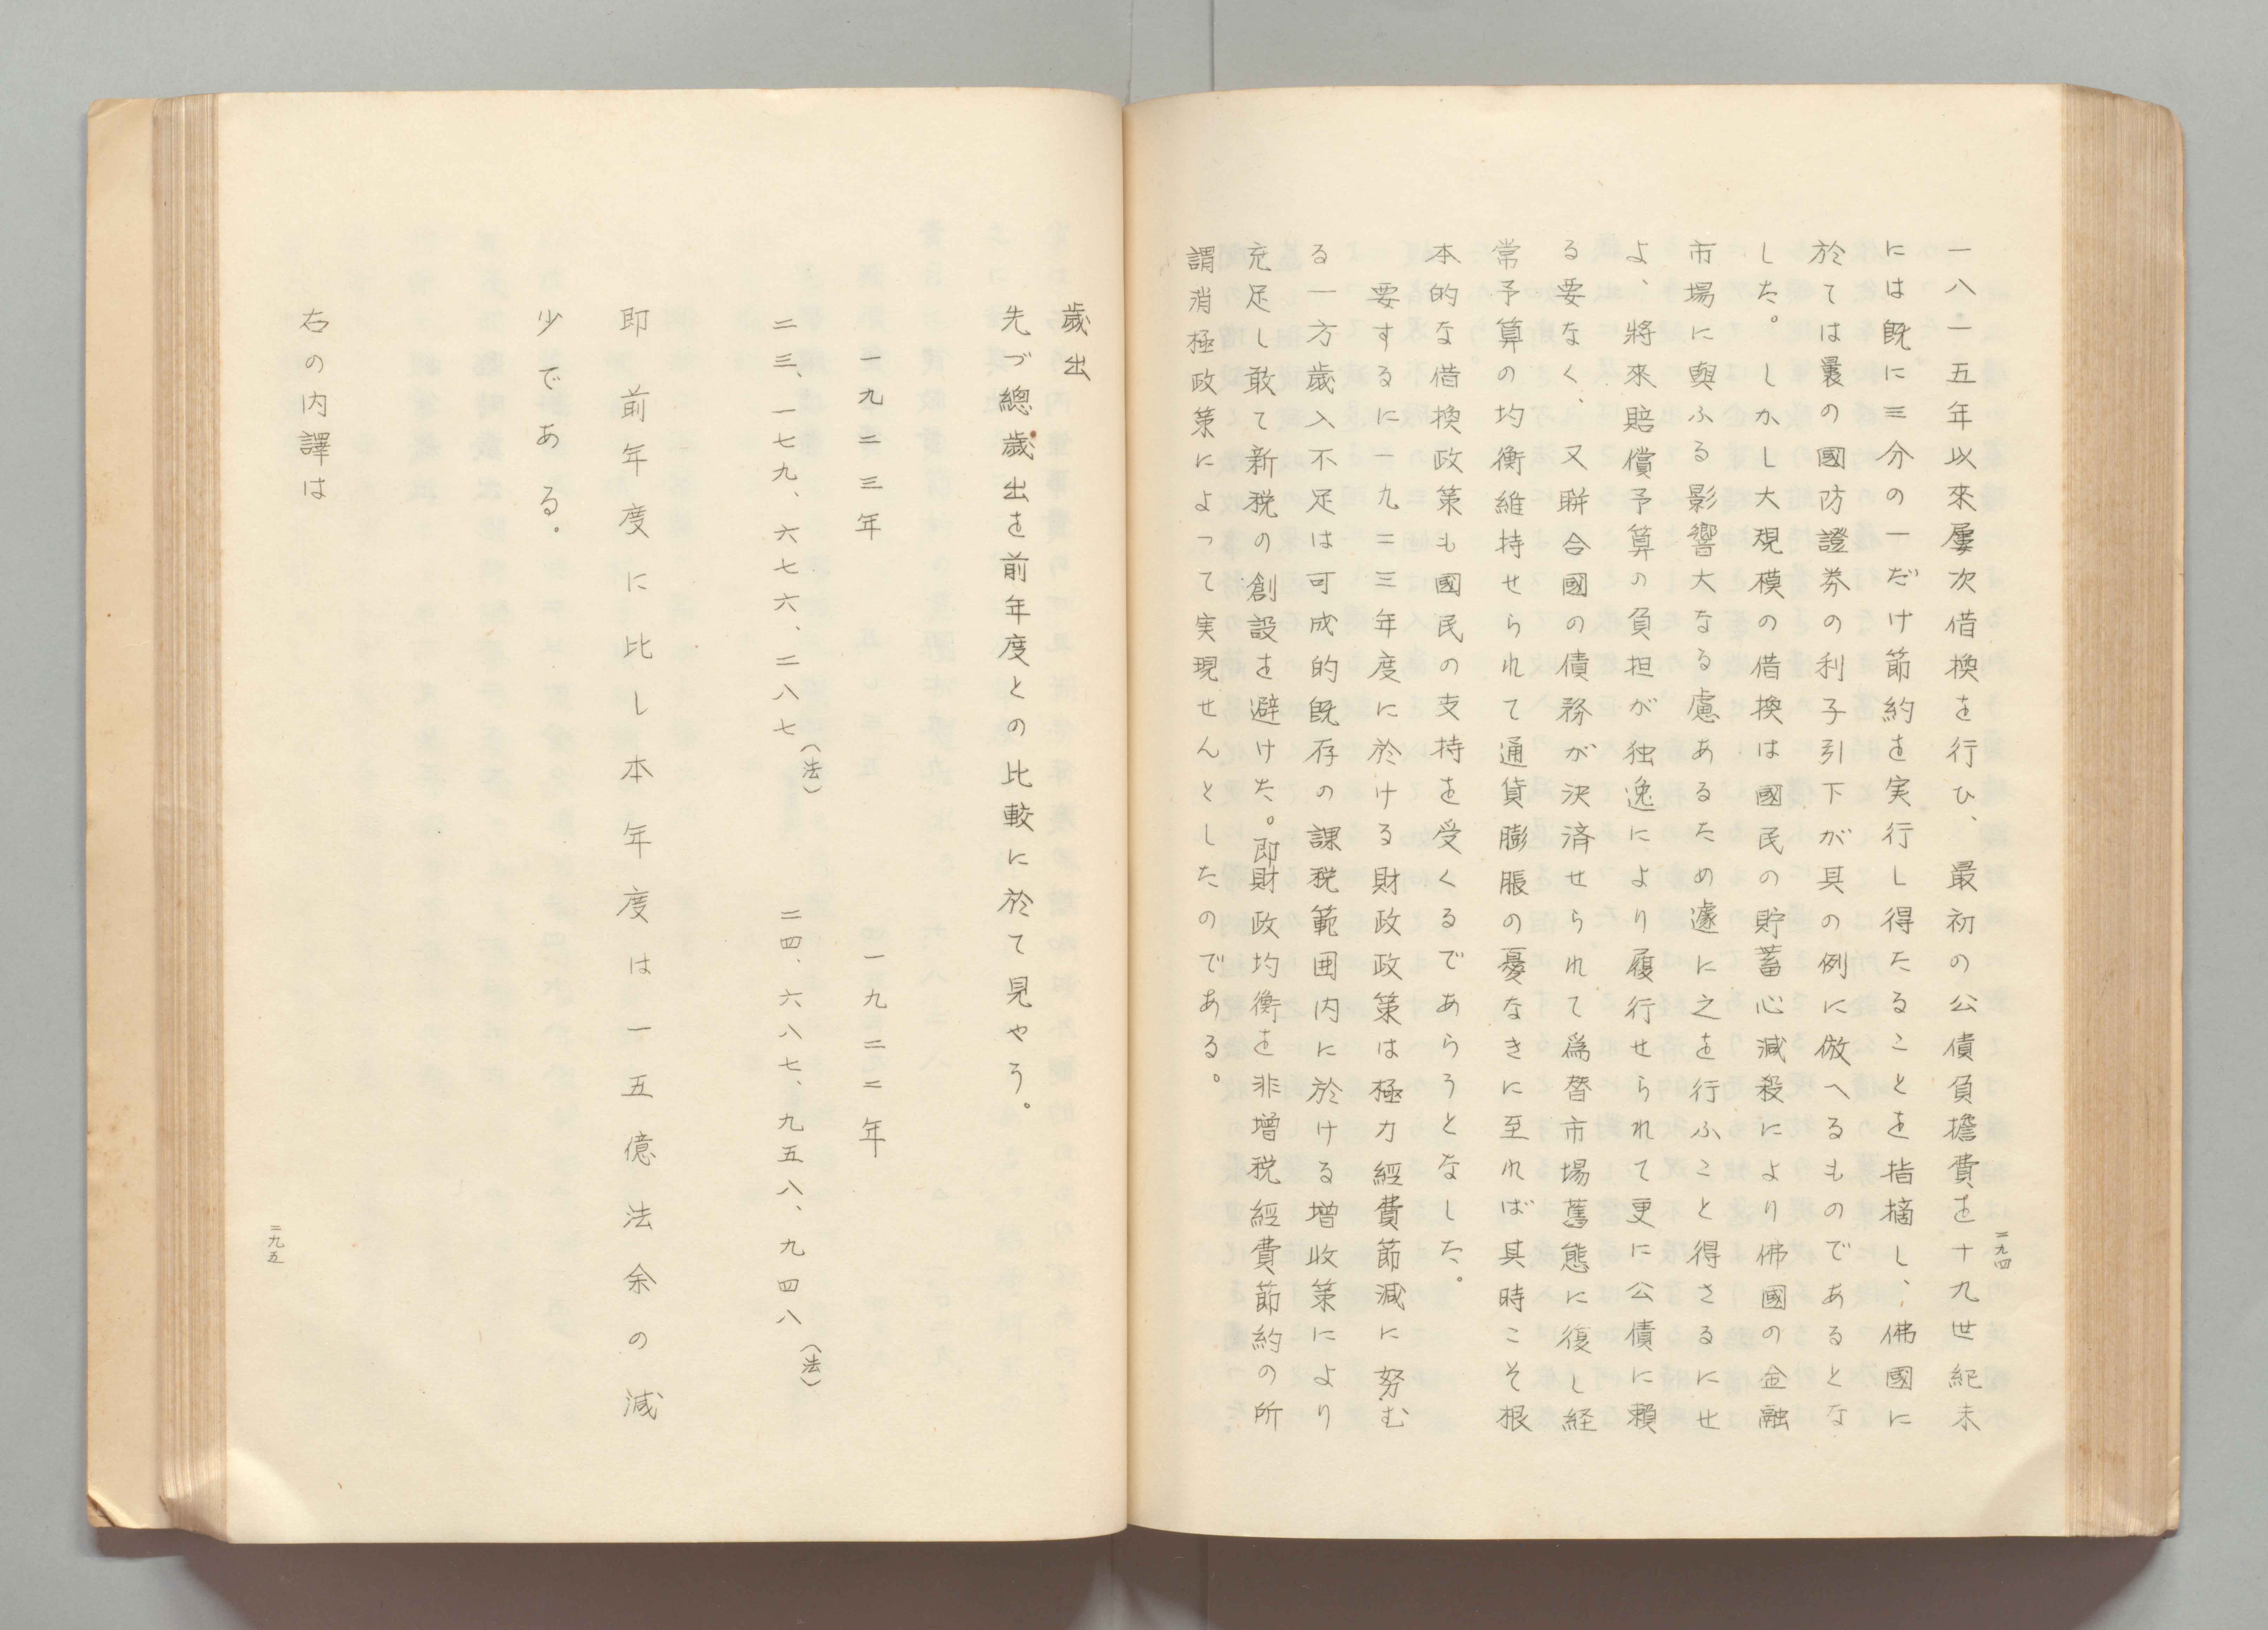 一九四
一八一五年以來屢次借換を行ひ、最初の公債負擔費を十九世紀末
には既に三分の一だけ節約を実行し得たることを指摘し、佛國に
於ては曩の國防證券の利子引下が其の例に倣へるものであるとな
した。しかし大規模の借換は國民の貯蓄心減殺により佛國の金融
市場に與ふる影響大なる慮あるため遽に之を行ふこと得さるにせ
よ、將來賠償予算の負担が独逸により履行せられて更に公債に賴
る要なく、又聨合國の債務が決済せられて爲替市場舊態に復し経
常予算の均衡維持せられて通貨膨脹の憂なきに至れば其時こそ根
本的な借換政策も國民の支持を受くるであらうとなした。
要するに一九二三年度に於ける財政政策は極力經費節減に努む
る一方歳入不足は可成的既存の課税範囲内に於ける増收策により
充足し敢て新税の創設を避けた。即財政均衡を非増税經費節約の所
謂消極政策によって実現せんとしたのである。
歳出
先づ總歳出を前年度との比較に於て見やう。
一九二三年 一九二二年
二三、一七九、六七六、二八七(法) 二四、六八七、九五八、九四八(法)
即前年度に比し本年度は一五億法余の減
少である。
右の内譯は
二九五